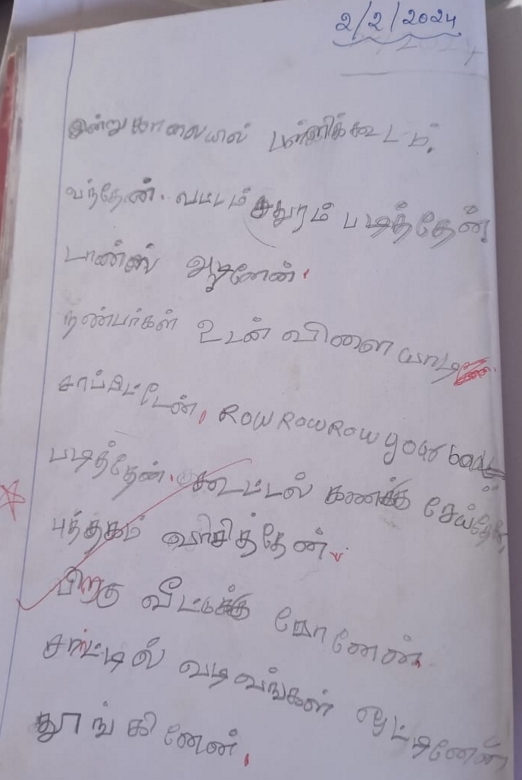 2/2/2024
இன்று காலையில் பள்ளிக்கூடம்.
வந்தேன். வட்டம் சதுரம் படித்தேன்
டான்ஸ் ஆடினேன்.
நண்பர்கள் உடன் விளையாடி
சாப்பிட்டேன், ROW ROW ROW your boat
படித்தேன். கூட்டல் கணக்கு செய்தேன்,
புத்தகம் வாசித்தேன்.
பிறகு வீட்டுக்கு போனேன்.
சார்ட்டில் வடிவங்கள் ஒட்டினேன்
தூங்கினேன்.